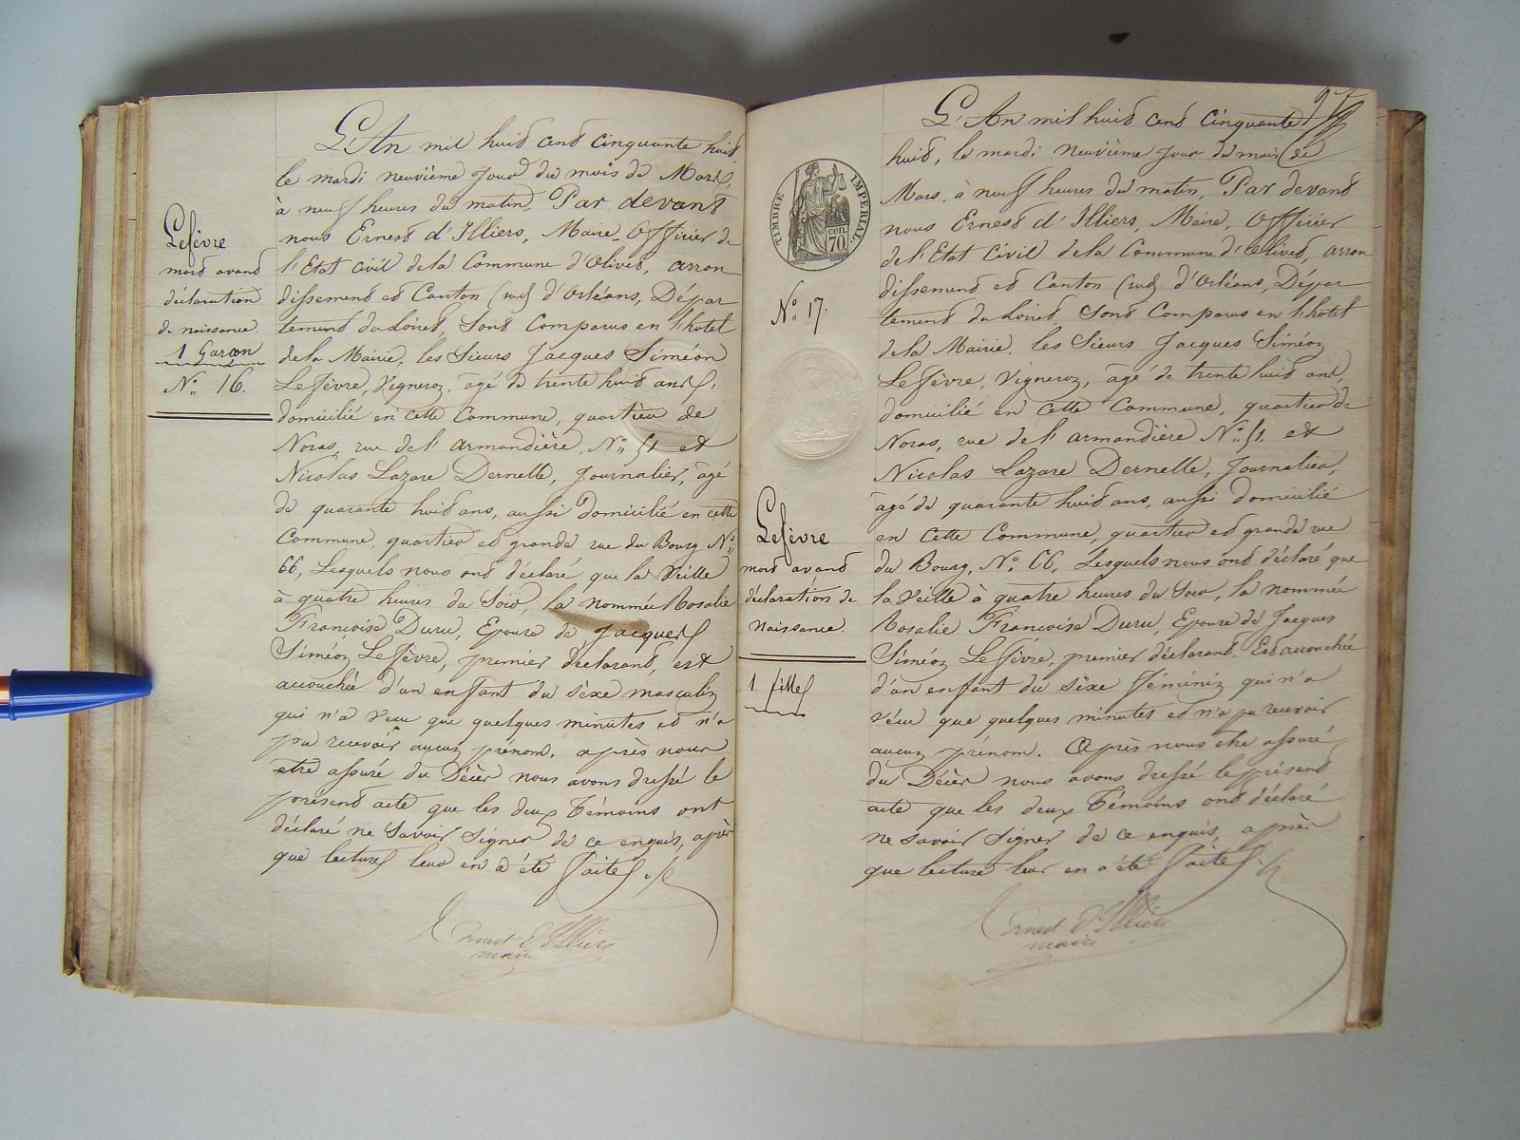 Lefèvre
mort avant
déclaration
de naissance
1 Garçon
N° 16.
L'An mil huit cent cinquante huit
le mardi neuvième jour du mois de Mars,
à neuf heures du matin, Par devant
nous Ernest d'Illiers, Maire, Officier de
l'Etat civil de la Commune d'Olivet, arron
dissement et Canton sud d'Orléans, Dépar
tement du Loiret, Sont Comparus en l'hotel
de la Mairie, les Sieurs Jacques Siméon
Lefèvre, Vigneron, âgé de trente huit ans,
domicilié en cette Commune, quartier de
Noras, rue de l'armandière, N° 51 et
Nicolas Lazare Dernelle, Journalier, âgé
de quarante huit ans, aussi domicilié en cette
Commune, quartier et grande rue du Bourg N°
66, Lesquels nous ont déclaré que la Veille
à quatre heures du Soir, la nommée Rosalie
Françoise Duru, Epouse de Jacques
Siméon Lefèvre, premier déclarant, est
accouchée d'un enfant du sèxe masculin
qui n'a vécu que quelques minutes et n'a
pu recevoir aucun prénom. après nous
etre assuré du Décès nous avons dressé le
présent acte que les deux Témoins ont
déclaré ne Savoir Signer de ce enquis, après
que lecture leur en a été faite.
Ernest d'Illiers
maire
TIMBRE IMPERIAL
CEN. 70
N° 17.
Lefèvre
mort avant
déclaration de
naissance.
1 fille
L'An mil huit cent cinquante
huit, le mardi neuvième jour du mois de
Mars, à neuf heures du matin, Par devant
nous Ernest d'Illiers, Maire, Officier
de l'Etat Civil de la Commune d'Olivet, arron
dissement et Canton sud d'Orléans, Dépar
tement du Loiret Sont Comparus en l'hotel
de la Mairie, les Sieurs Jacques Siméon
Lefèvre, Vigneron, âgé de trente huit ans,
domicilié en cette Commune, quartier de
Noras, rue de l'armandière N° 51, et
Nicolas Lazare Dernelle, Journalier,
âgé de quarante huit ans, aussi domicilié
en cette Commune, quartier et grande rue
du Bourg, N° 66, Lesquels nous ont déclaré que
la Veille à quatre heures du Soir, la nommée
Rosalie Françoise Duru, Epouse de Jacques
Siméon Lefèvre, premier déclarant, Est accouchée
d'un enfant du sèxe féminin qui n'a
vécu que quelques minutes et n'a pu recevoir
aucun prénom. Après nous etre assuré
du Décès nous avons dressé le présent
acte que les deux Témoins ont déclaré
ne savoir Signer de ce enquis, après
que lecture leur en a été faite.
Ernest d'Illiers
maire